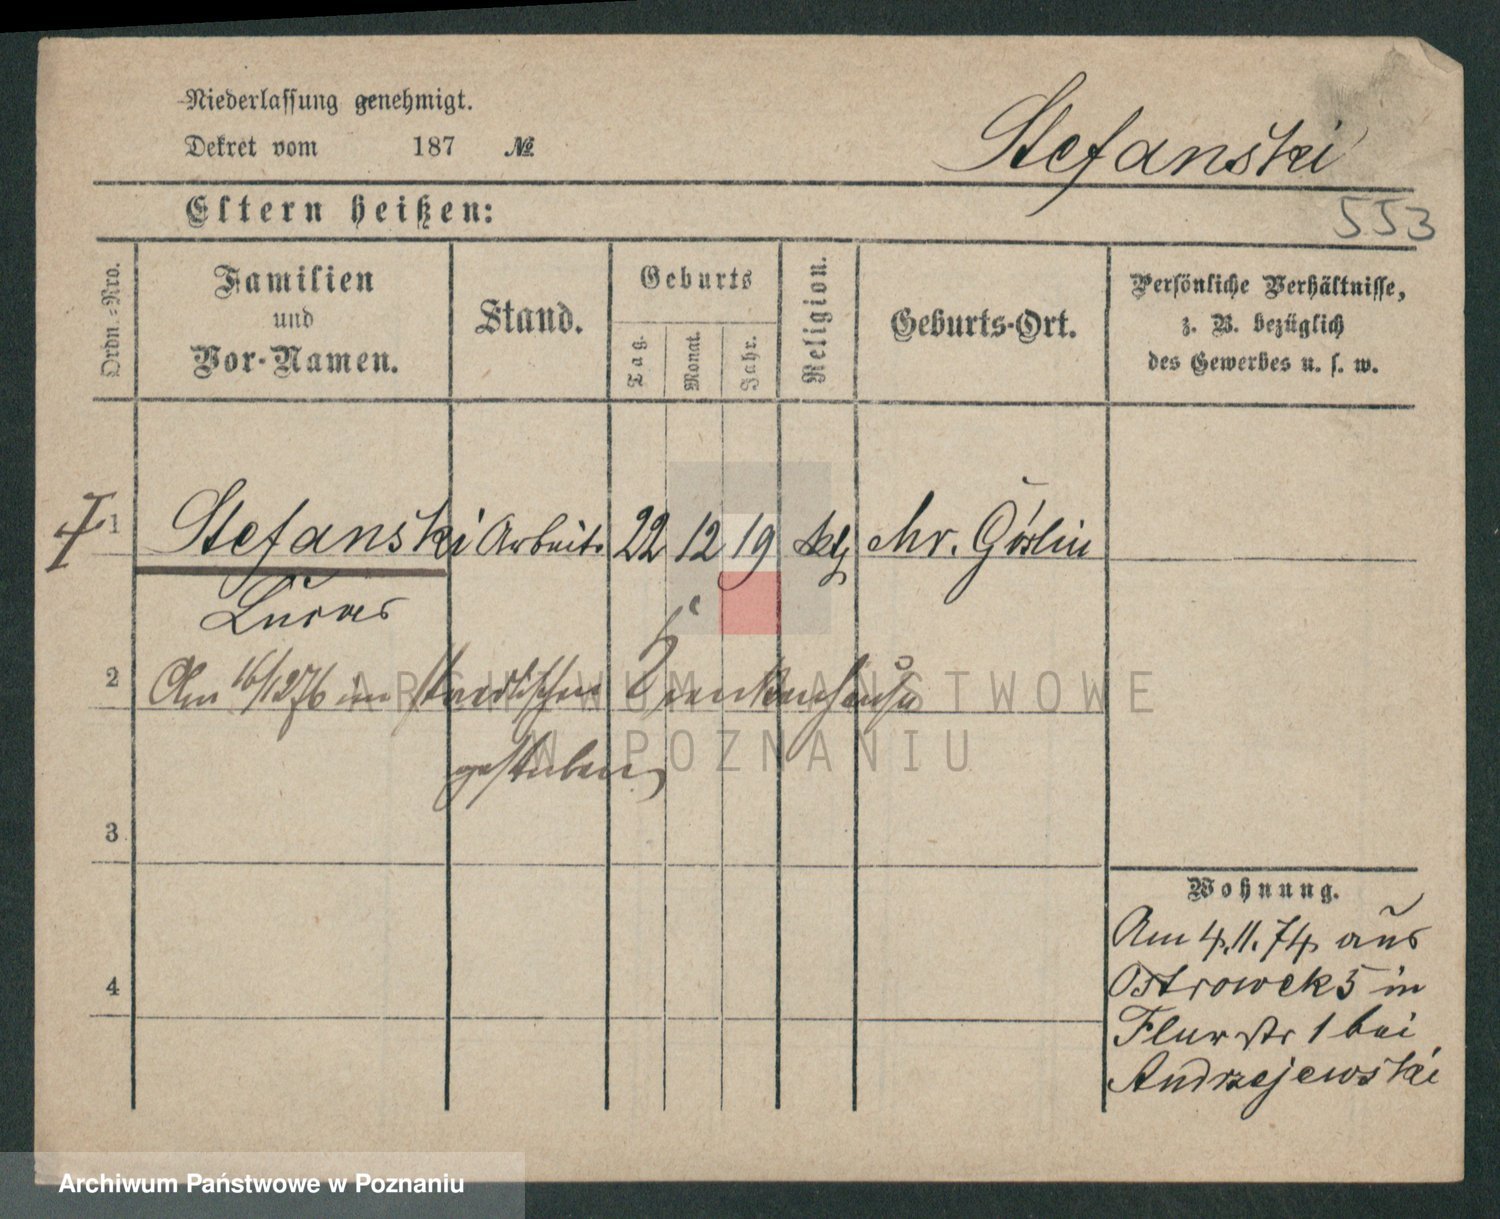 Niederlassung genehmigt.
Dekret vom 187 №
Stefanski
Eltern heißen:
553
Ordn.-Nro.
Familien
und
Vor-Namen.
Stand.
Geburts
Tag.
Monat.
Jahr.
Religion.
Geburts-Ort.
Persönliche Verhältnisse,
z. B. bezüglich
des Gewerbes u. s. w.
1 Stefanski Arbeit. 22 12 19 Mr. Goslin
Lucas
2 Am 16/12 76 im städtischen Krankenhause
gestorben
3
Wohnung.
Am 4.11.74 aus
Ostrowek 5 in
4
Flurstr 1 bei
Andrzejewski
ARCHIWUM PAŃSTWOWE
W POZNANIU
Archiwum Państwowe w Poznaniu